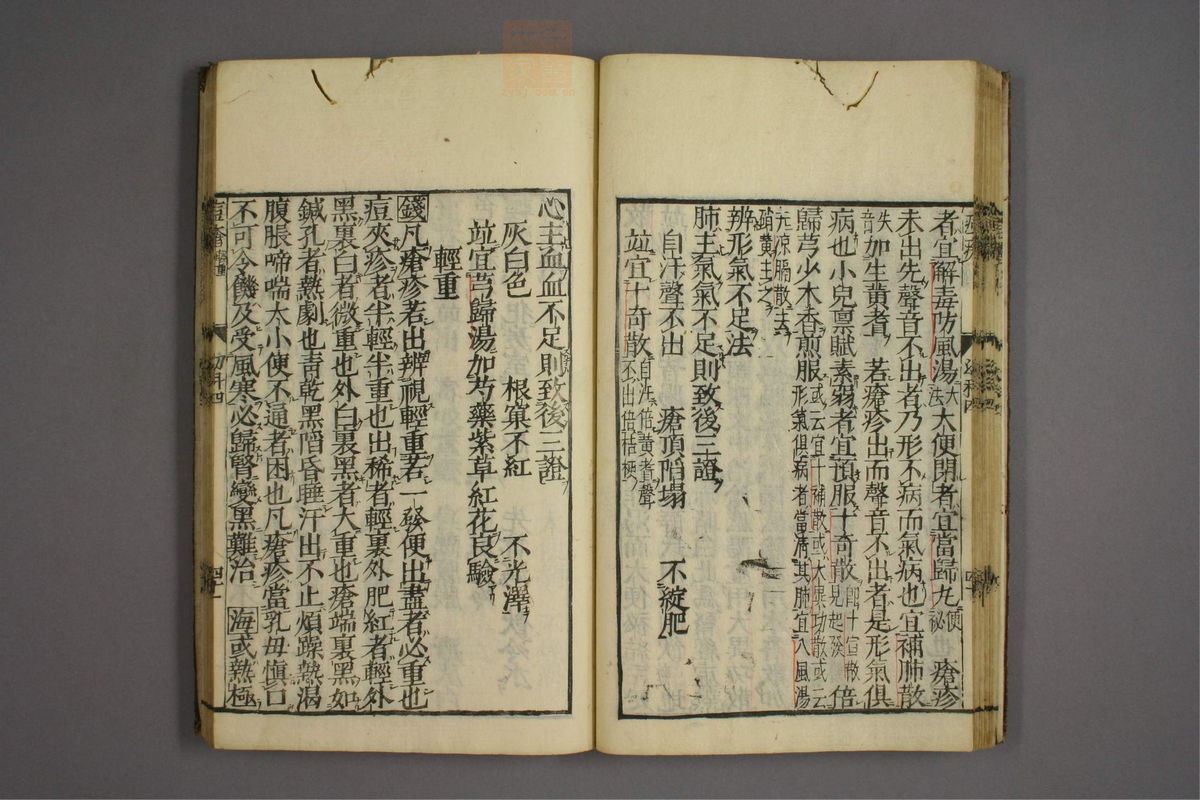 者宜解毒防風湯大法大便閉者宜當歸丸便秘也瘡疹
未出先聲音不出者乃形不病而氣病也宜補肺散
失音加生黃耆若瘡疹出而聲音不出者是形氣俱
病也小兒稟賦素弱者宜預服十奇散即十宣散見起發倍
歸芎少木香煎服或云宜十補散或大異功散或云形氣俱病者當清其肺宜八風湯
元涼膈散去硝黃主之
辨形氣不足法
肺主氣氣不足則致後三證
自汗聲不出 瘡頂陷塌 不綻肥
竝宜十奇散自汗倍黃耆聲不出倍桔梗
心主血血不足則致後三證
灰白色 根窠不紅 不光澤
竝宜芎歸湯加芍藥紫草紅花良驗
輕重
錢凡瘡疹若出辨視輕重若一發便出盡者必重也
痘夾疹者半輕半重也出稀者輕裏外肥紅者輕外
黑裏白者微重也外白裏黑者大重也瘡端裏黑如
鍼孔者熱劇也青乾黑陷昏睡汗出不止煩躁熱渴
腹脹啼喘大小便不通者困也凡瘡疹當乳母慎口
不可令饑及受風寒必歸腎變黑難治 海或熱極
幼科四